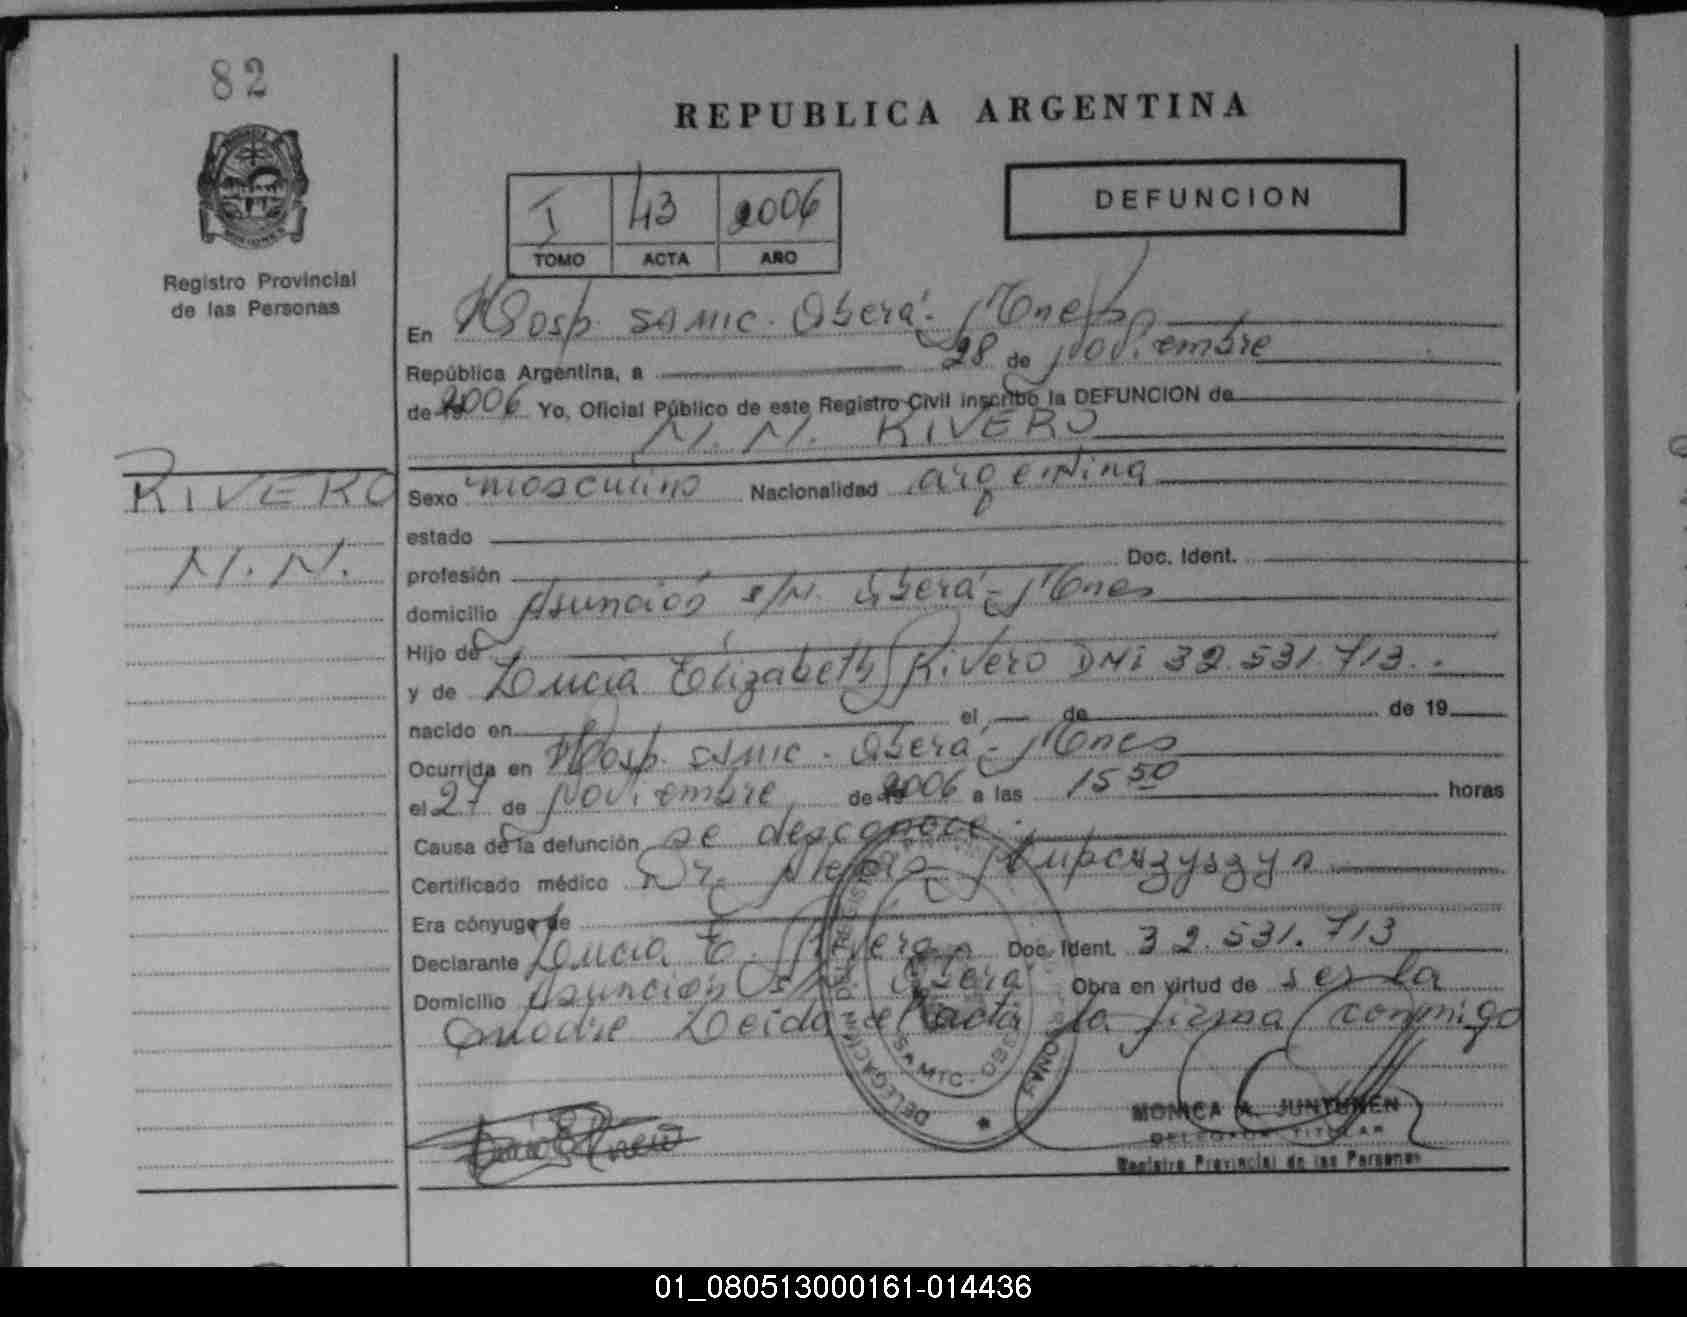 82
REPUBLICA ARGENTINA
I 43 2006
TOMO ACTA AÑO
DEFUNCION
Registro Provincial
de las Personas
En Hosp. SAMIC. Oberá - Mnes
República Argentina, a 28 de Noviembre
de 2006 Yo, Oficial Público de este Registro Civil inscribo la DEFUNCION de
N. N. RIVERO
RIVERO
N. N.
Sexo masculino Nacionalidad argentina
estado
profesión Doc. Ident.
domicilio Asunción s/N. Oberá - Mnes
Hijo de
y de Lucia Elizabeth Rivero DNi 32.531.713.
nacido en el de de 19
Ocurrida en Hosp. SAMIC - Oberá - Mnes
el 27 de Noviembre de 2006 a las 15 50 horas
Causa de la defunción se desconoce.
Certificado médico Dr.
Era cónyuge de
Declarante Lucia E. Rivero Doc. Ident. 32.531.713
Domicilio Asunción s/N Oberá Obra en virtud de ser la
madre Leida el acta la firma conmigo
DELEGACION
SAMIC - OBERA
MONICA A. JUNTUNEN
DELEGADA TITULAR
Registro Provincial de las Personas
01_080513000161-014436